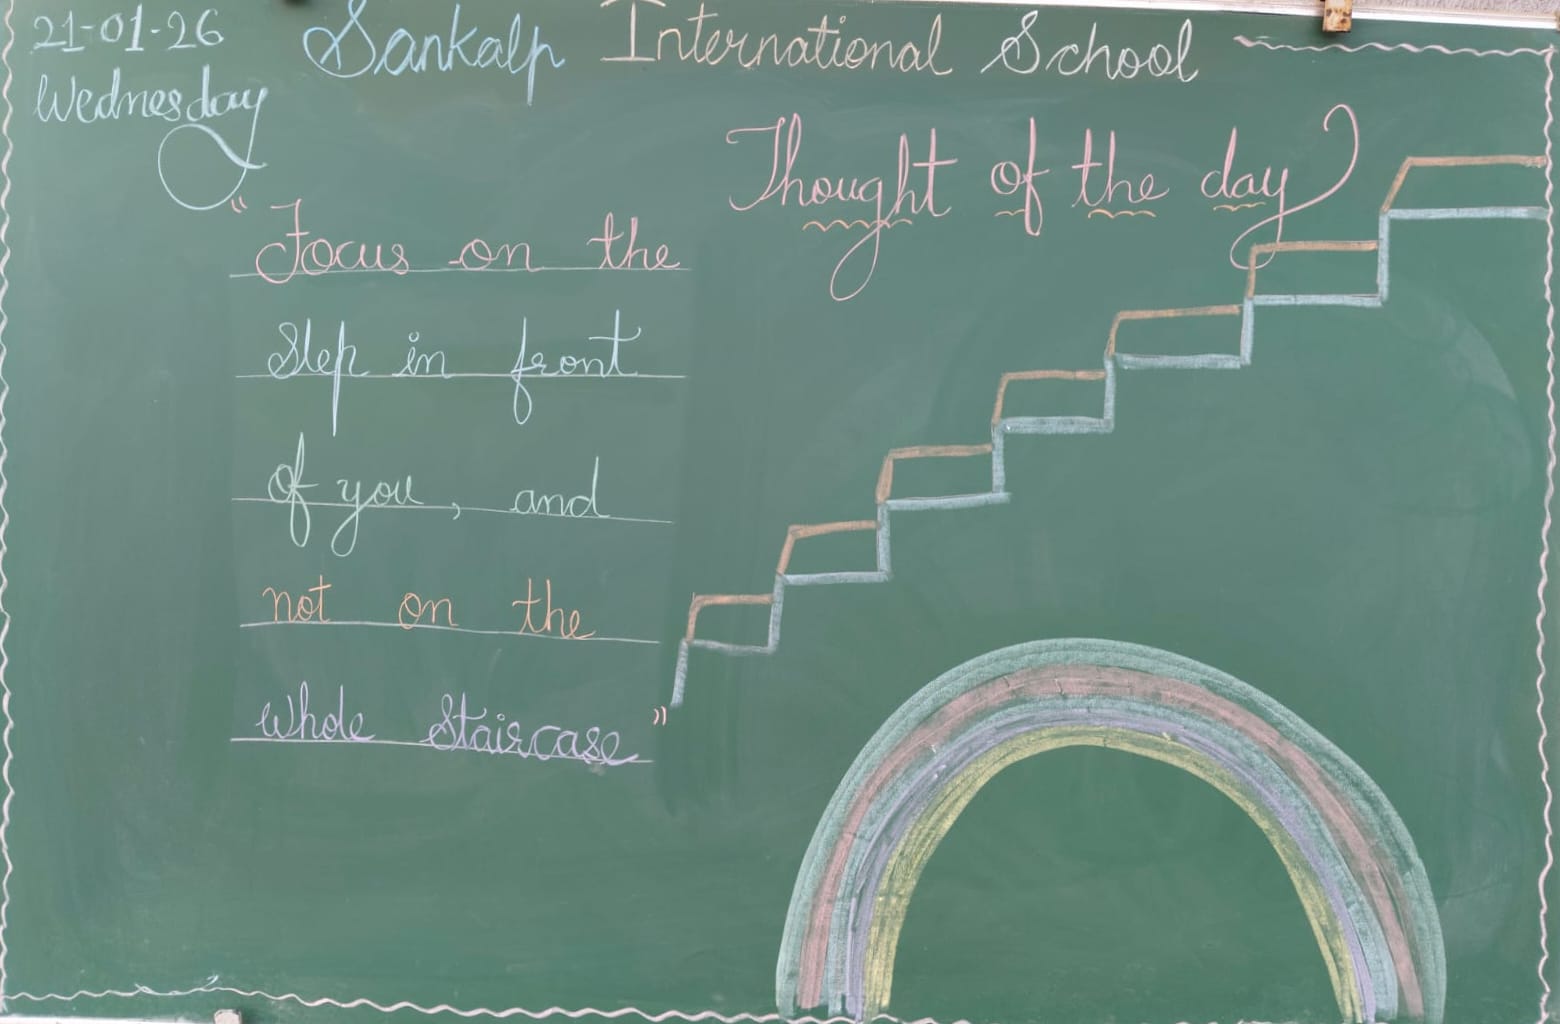 21-01-26
Wednesday
Sankalp International School
Thought of the day
"Focus on the
Step in front
of you, and
not on the
whole Staircase"